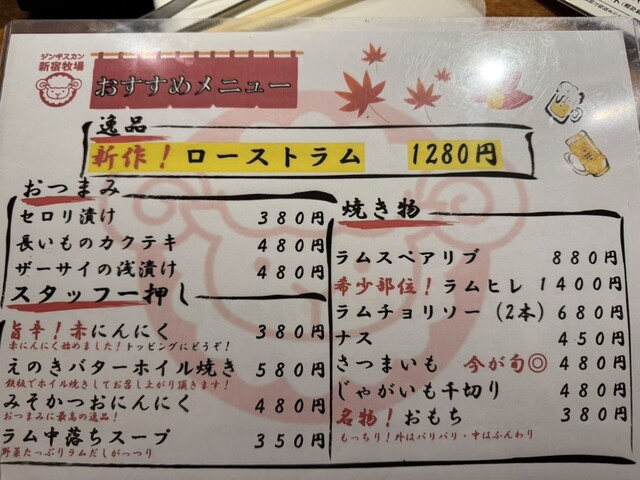 ジンギスカン
新宿牧場
おすすめメニュー
逸品
新作！ローストラム 1280円
おつまみ
セロリ漬け 380円
長いものカクテキ 480円
ザーサイの浅漬け 480円
スタッフ一押し
旨辛！赤にんにく 380円
赤にんにく始めました！トッピングにどうぞ！
えのきバターホイル焼き 580円
鉄板でホイル焼きしてお召し上がり頂きます！
みそかつおにんにく 480円
おつまみに最高の逸品！
ラム中落ちスープ 350円
野菜たっぷりラムだしがっつり
焼き物
ラムスペアリブ 880円
希少部位！ラムヒレ 1400円
ラムチョリソー（2本）680円
ナス 450円
さつまいも 今が旬◎ 480円
じゃがいも千切り 480円
名物！おもち 380円
もっちり！外はパリパリ・中はふんわり